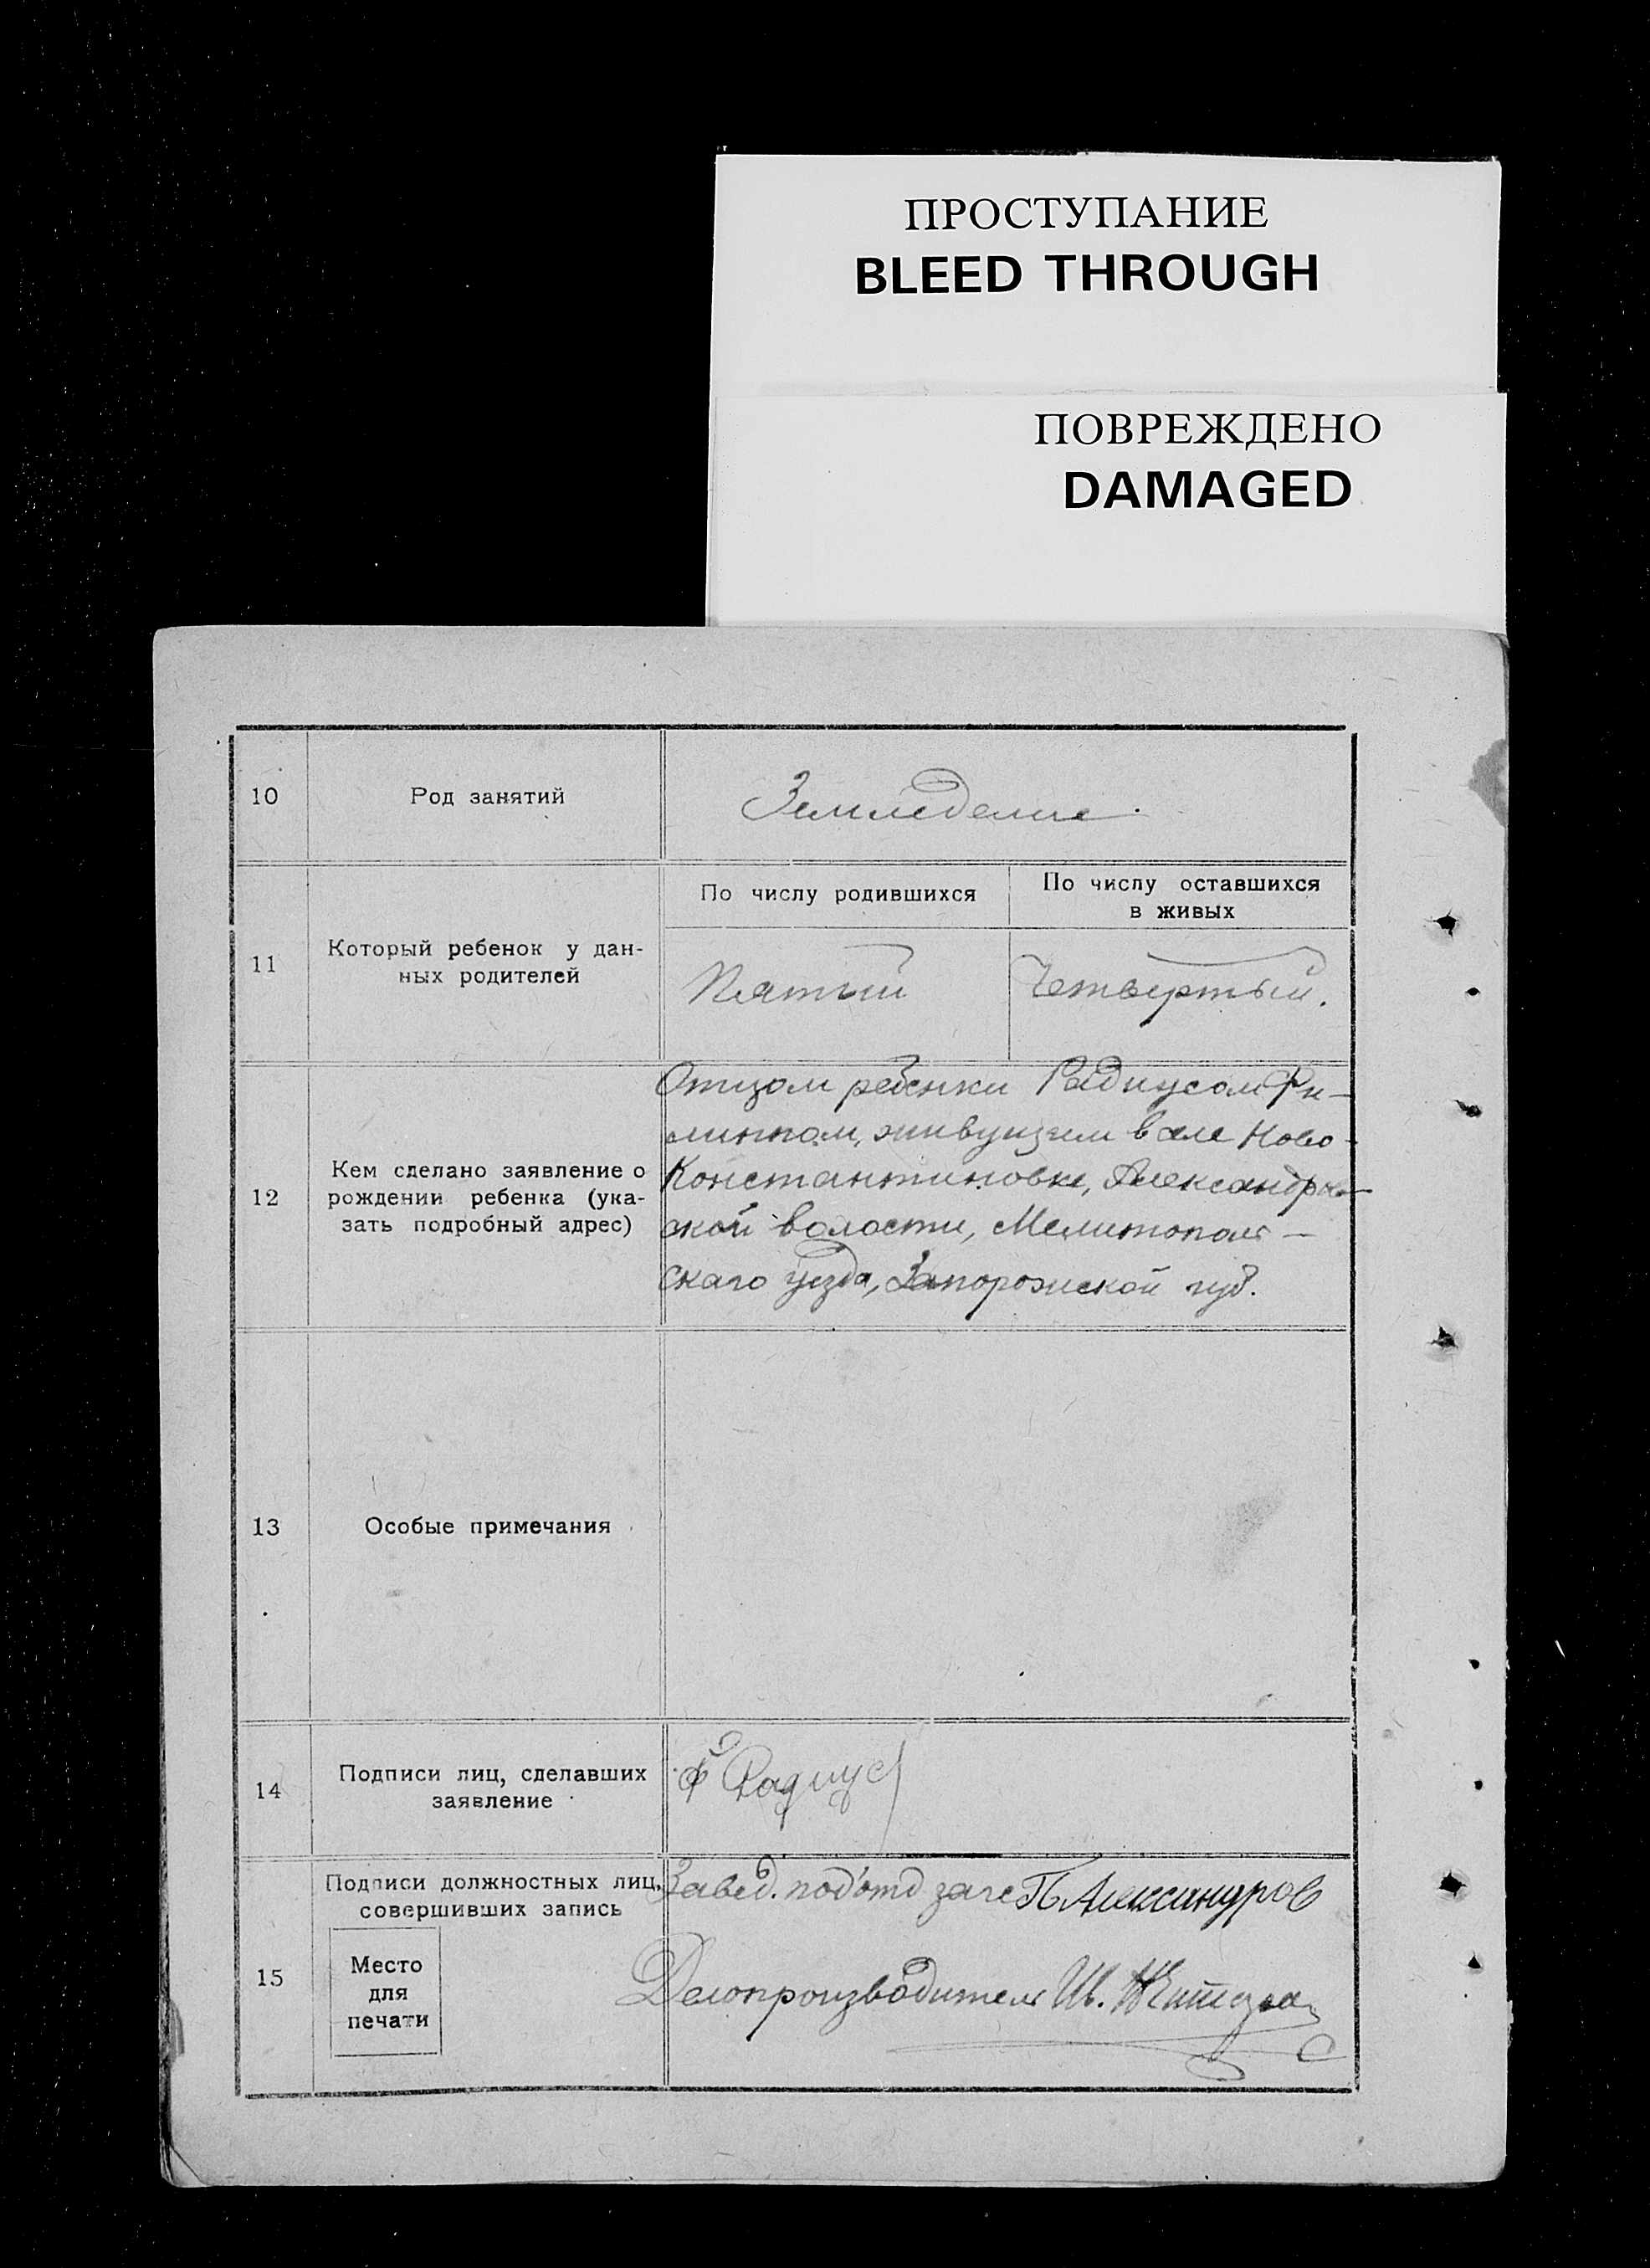 ПРОСТУПАНИЕ
BLEED THROUGH
ПОВРЕЖДЕНО
DAMAGED
10
Род занятий
Земледелие.
11
Который ребенок у дан-
ных родителей
По числу родившихся
По числу оставшихся
в живых
Пятый
Четвертый.
12
Кем сделано заявление о
рождении ребенка (ука-
зать подробный адрес)
Отцом ребенки Радиусом Фи-
липпом, живущем в селе Ново-
Константиновке, Александров-
ской волости, Мелитополь-
скаго уезда, Запорожской губ.
13
Особые примечания
14
Подписи лиц, сделавших
заявление
Ф Радиус
15
Подписи должностных лиц,
совершивших запись
Место
для
печати
Завед. под'отд загс П. Александров
Делопроизводитель Ив.